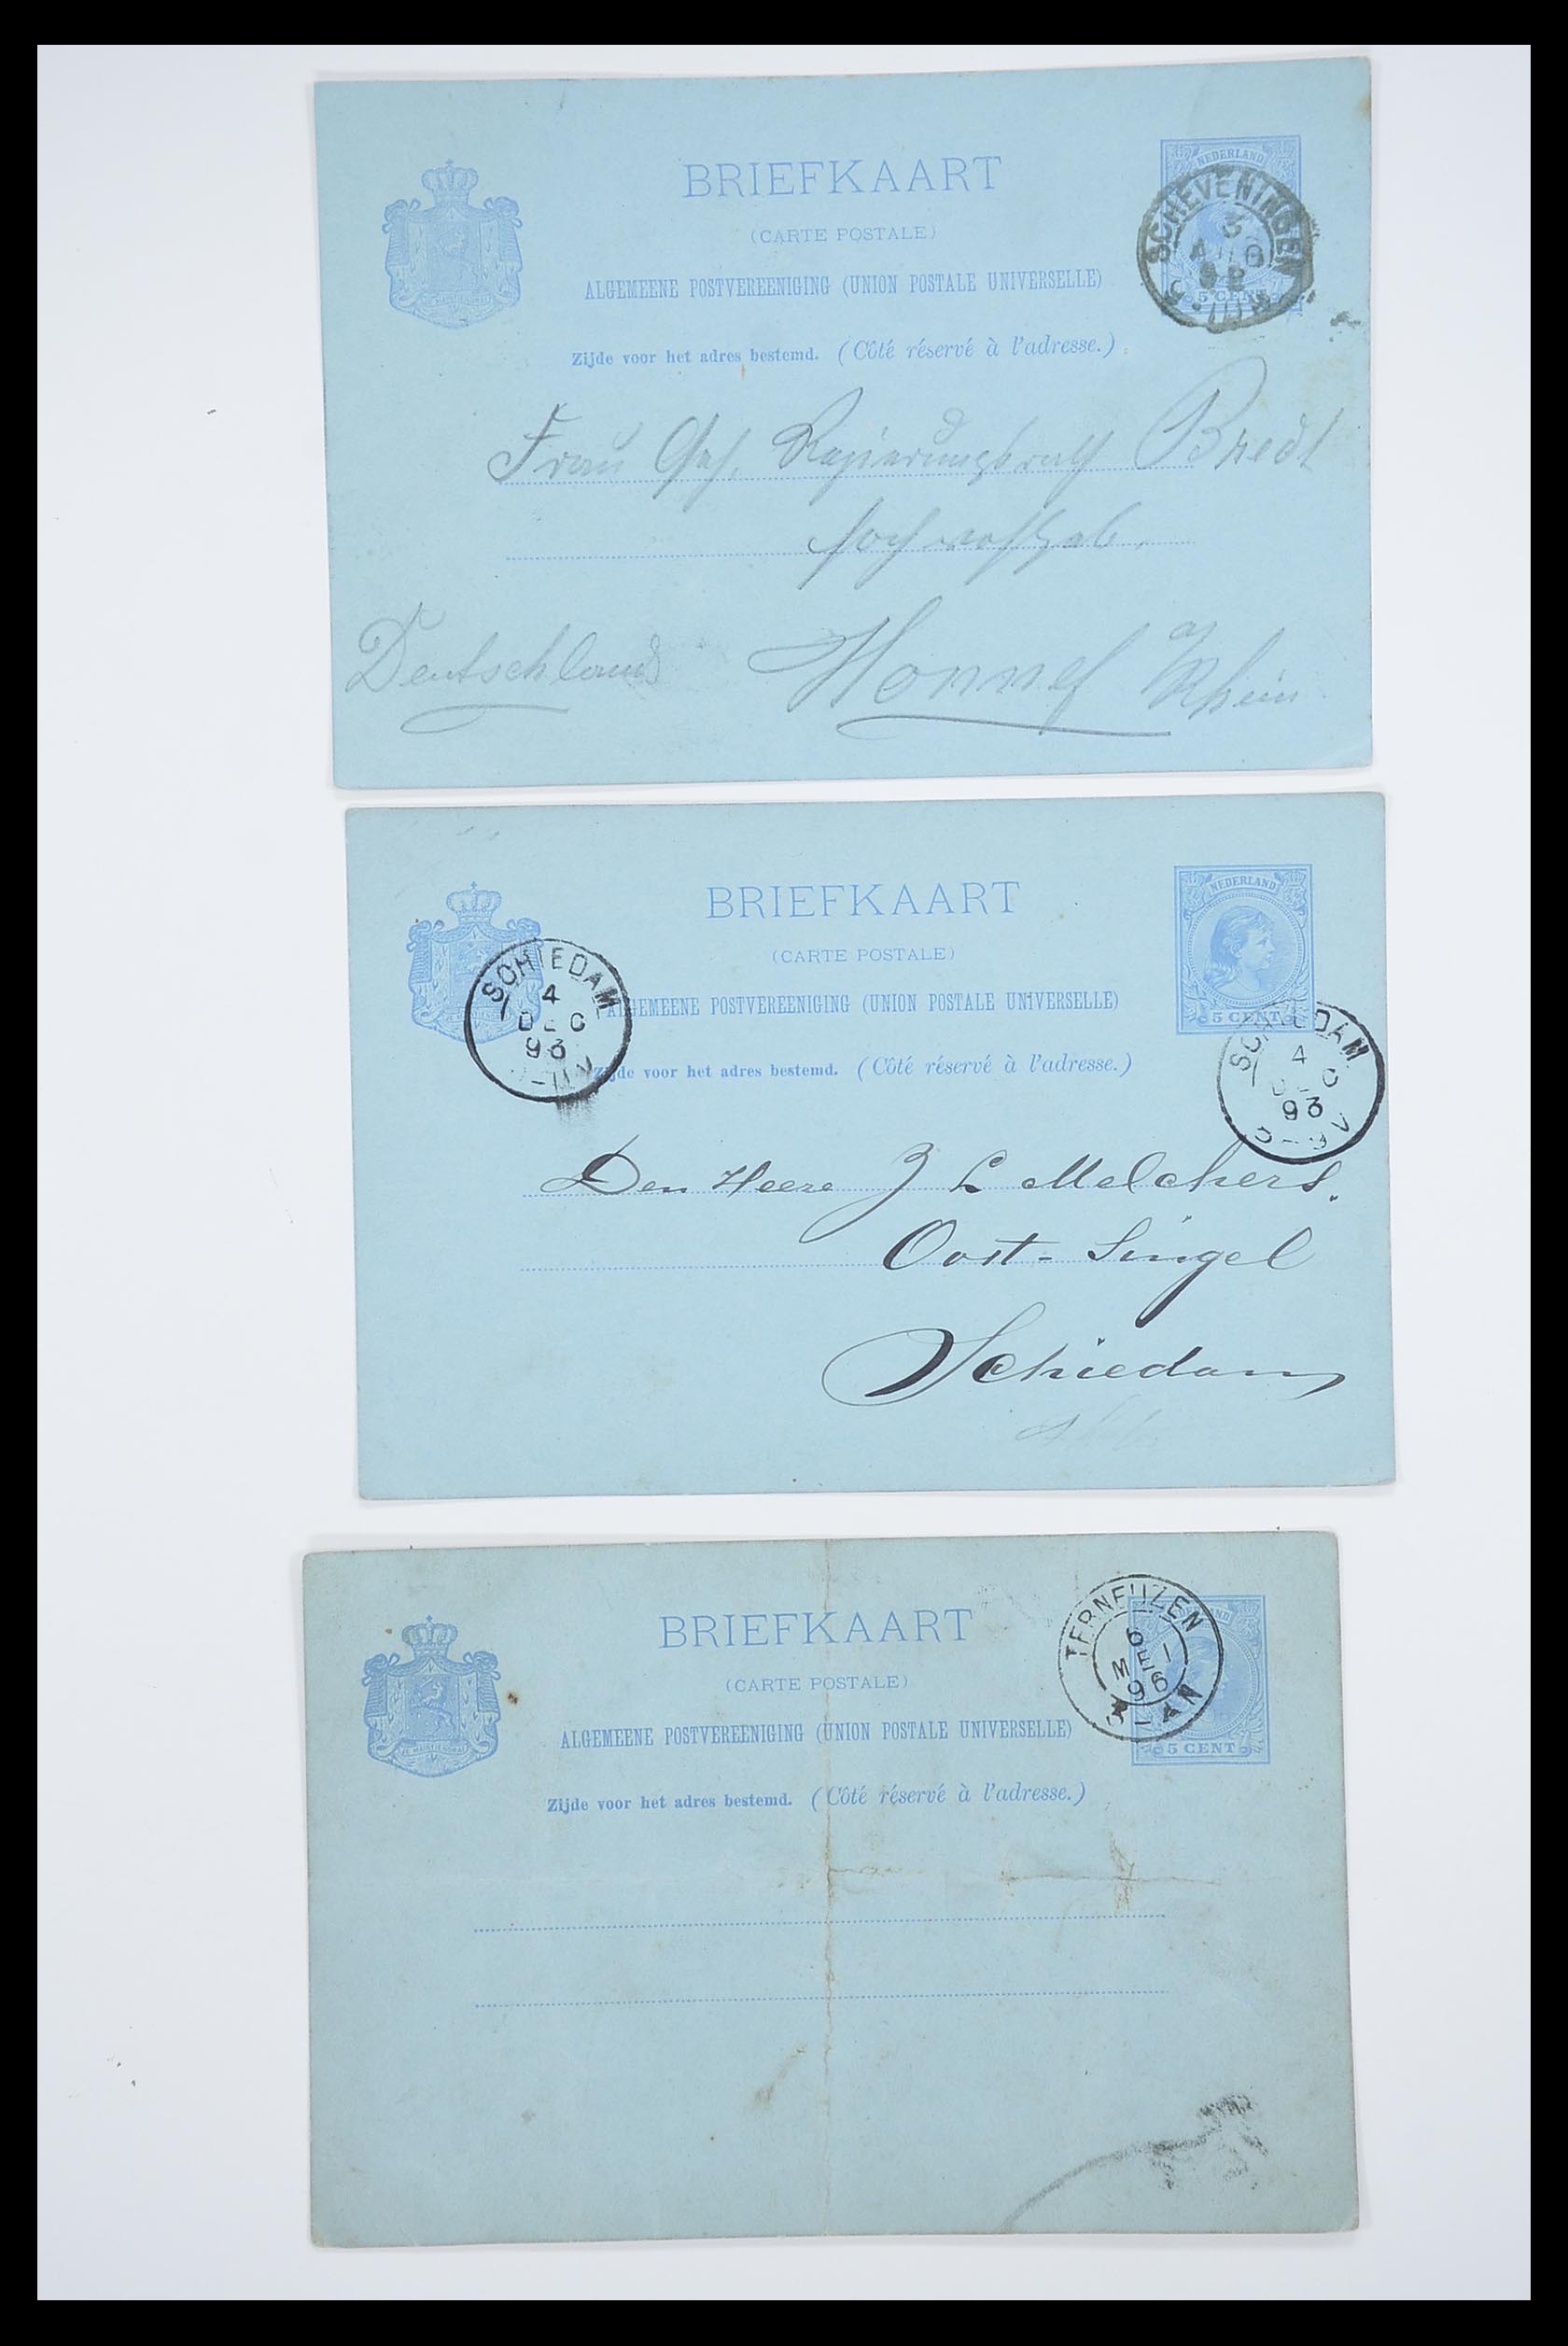 BRIEFKAART
(CARTE POSTALE)
ALGEMEENE POSTVEREENIGING (UNION POSTALE UNIVERSELLE)
Zijde voor het adres bestemd. (Côté réservé à l'adresse.)
NEDERLAND
5 CENT
SCHEVENINGEN
3
AUG
92
Frau Geh. Regierungsrath Bredt
Hochwohlgeb.
Deutschland Honnef a/Rhein
BRIEFKAART
(CARTE POSTALE)
ALGEMEENE POSTVEREENIGING (UNION POSTALE UNIVERSELLE)
Zijde voor het adres bestemd. (Côté réservé à l'adresse.)
NEDERLAND
5 CENT
SCHIEDAM
4
DEC
93
SCHIEDAM
4
DEC
93
Den Heere J L Melchers.
Oost-Singel
Schiedam
BRIEFKAART
(CARTE POSTALE)
ALGEMEENE POSTVEREENIGING (UNION POSTALE UNIVERSELLE)
Zijde voor het adres bestemd. (Côté réservé à l'adresse.)
5 CENT
TERNEUZEN
6
MEI
96